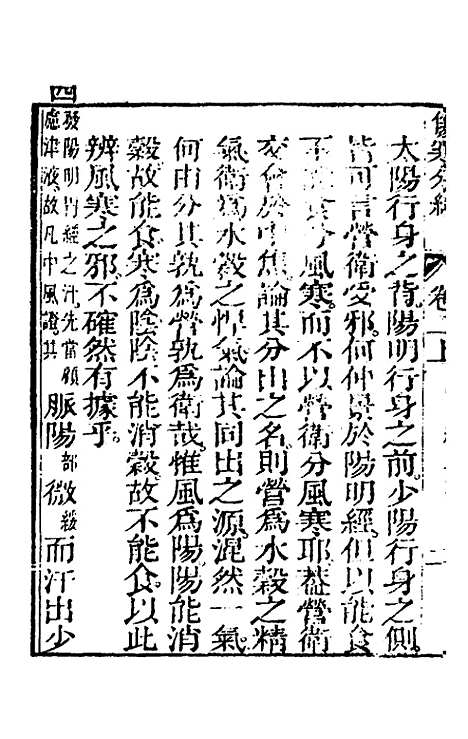 傷寒分經 卷一上
太陽行身之背陽明行身之前少陽行身之側
皆可言營衛受邪何仲景於陽明經但以能食
不能食分風寒而不以營衛分風寒耶葢營衛
交會於中焦論其分出之名則營爲水穀之精
氣衛爲水穀之悍氣論其同出之源混然一氣
何由分其孰爲營孰爲衛哉惟風爲陽陽能消
穀故能食寒爲陰陰不能消穀故不能食以此
辨風寒之邪不確然有據乎
四
發陽明胃經之汗先當顧
慮津液故凡中風證其脈陽部微緩而汗出少